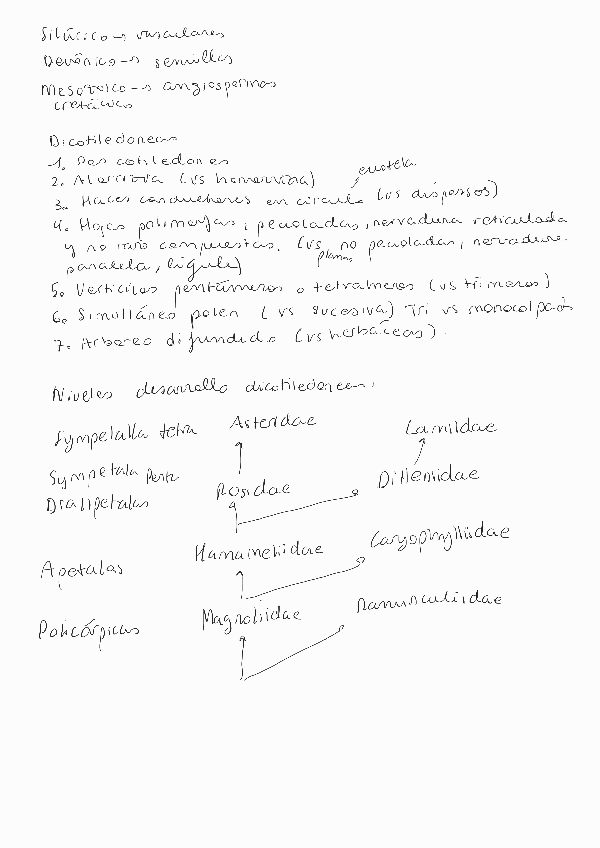 Silúrico → vasculares
Devónico → semillas
Mesozoico → angiospermas
cretácico
Dicotiledoneas
1. Dos cotiledones
2. Alorriza (vs homorriza)
eustela
3. Haces conductores en circulo (vs dispersos)
4. Hojas polimorfas, pecioladas, nervadura reticulada
y no raro compuestas. (vs no pecioladas, nervadura
planas
paralela, lígula)
5. Verticilos pentámeros o tetrámeros (vs trímeros)
6. Simultáneo polen (vs sucesiva) Tri vs monocolpado
7. Arboreo difundido (vs herbáceas).
Niveles desarrollo dicotiledoneas:
Sympetala tetra Asteridae Lamiidae
Sympetala Penta
Dialipetalas Rosidae Dilleniidae
Apetalas Hamamelidae Caryophyllidae
Policárpicas Magnoliidae Ranunculiidae